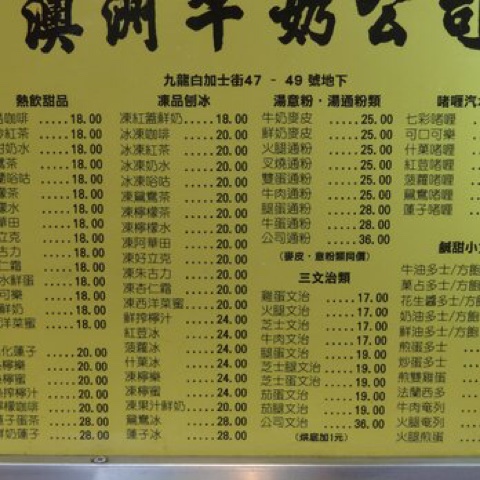 澳洲牛奶公司
九龍白加士街47 - 49 號地下
熱飲甜品
咖啡 .....18.00
紅茶 .....18.00
奶水 .....18.00
茶 .....18.00
咕 .....18.00
茶 .....18.00
水 .....18.00
華田 .....18.00
立克 .....18.00
古力 .....18.00
仁霜 .....18.00
水鮮蛋 .....18.00
可樂 .....18.00
鮮奶 .....18.00
洋菜蜜 .....18.00
化蓮子 .....20.00
檸樂 .....20.00
檸蜜 .....20.00
檸汁 .....20.00
檬咖啡 .....20.00
子蛋茶 .....28.00
鮮奶蓮子 .....28.00
凍品刨冰
凍紅蓋鮮奶 .....18.00
冰凍咖啡 .....20.00
冰凍奶茶 .....20.00
冰凍奶水 .....20.00
冰凍咕 .....20.00
凍鴛鴦茶 .....20.00
凍檸檬茶 .....20.00
凍檸檬水 .....20.00
凍阿華田 .....20.00
凍好立克 .....20.00
凍朱古力 .....20.00
凍杏仁霜 .....20.00
凍西洋菜蜜 .....20.00
鮮搾檸汁 .....24.00
紅荳冰 .....24.00
菠蘿冰 .....24.00
什菓冰 .....24.00
凍檸樂 .....24.00
凍檸蜜 .....24.00
凍果汁鮮奶 .....24.00
鴛鴦冰 .....28.00
蓮子冰 .....28.00
湯意粉・湯通粉類
牛奶麥皮 .....25.00
鮮奶麥皮 .....25.00
火腿通粉 .....25.00
叉燒通粉 .....25.00
雙蛋通粉 .....25.00
牛肉通粉 .....25.00
腿蛋通粉 .....28.00
牛蛋通粉 .....28.00
公司通粉 .....36.00
(麥皮・意粉類同價)
三文治類
雞蛋文治 .....17.00
火腿文治 .....17.00
芝士文治 .....17.00
牛肉文治 .....17.00
腿蛋文治 .....19.00
芝士腿文治 .....19.00
芝士蛋文治 .....19.00
茄蛋文治 .....19.00
茄腿文治 .....19.00
公司文治 .....36.00
(烘底加1元)
啫喱汽
七彩啫喱
可口可樂
什菓啫喱
紅荳啫喱
菠蘿啫喱
鴛鴦啫喱
蓮子啫喱
鹹甜小
牛油多士/方飽
菓占多士/方飽
花生醬多士/
奶油多士/方飽
鮮油多士/方飽
煎蛋多士
炒蛋多士
煎雙雞蛋
法蘭西多
牛肉奄列
火腿奄列
火腿煎蛋